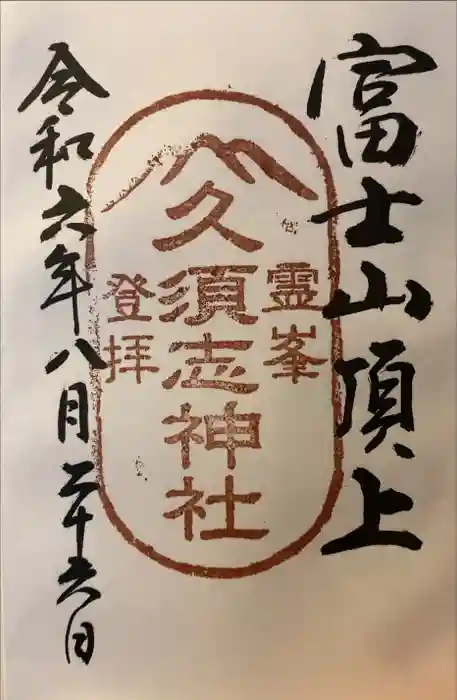 富士山頂上
霊峯
久須志神社
登拝
令和六年八月二十六日